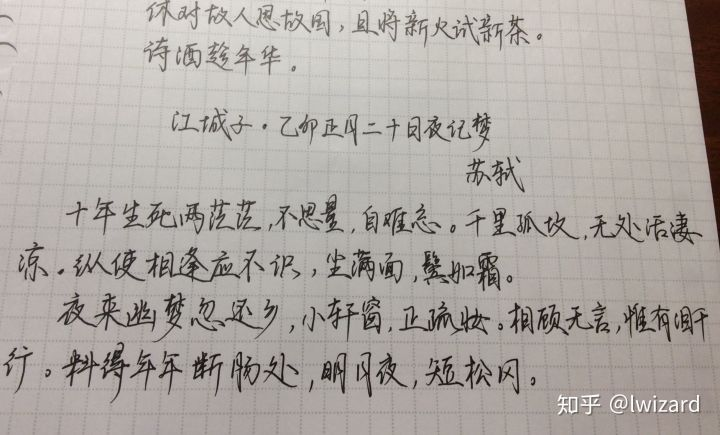 休对故人思故国，且将新火试新茶。
诗酒趁年华。
江城子·乙卯正月二十日夜记梦
苏轼
十年生死两茫茫，不思量，自难忘。千里孤坟，无处话凄
凉。纵使相逢应不识，尘满面，鬓如霜。
夜来幽梦忽还乡，小轩窗，正疏妆。相顾无言，惟有泪千
行。料得年年断肠处，明月夜，短松冈。
知乎 @lwizard